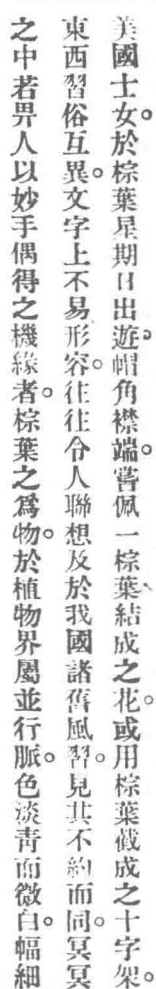 美國士女於棕葉星期日出遊。帽角襟端。嘗佩一棕葉結成之花。或用棕葉截成之十字架。
東西習俗互異。文字上不易形容。往往令人聯想及於我國諸舊風習。見其不約而同。冥冥
之中若畀人以妙手偶得之機緣者。棕葉之爲物。於植物界屬並行脈。色淡青而微白。幅細